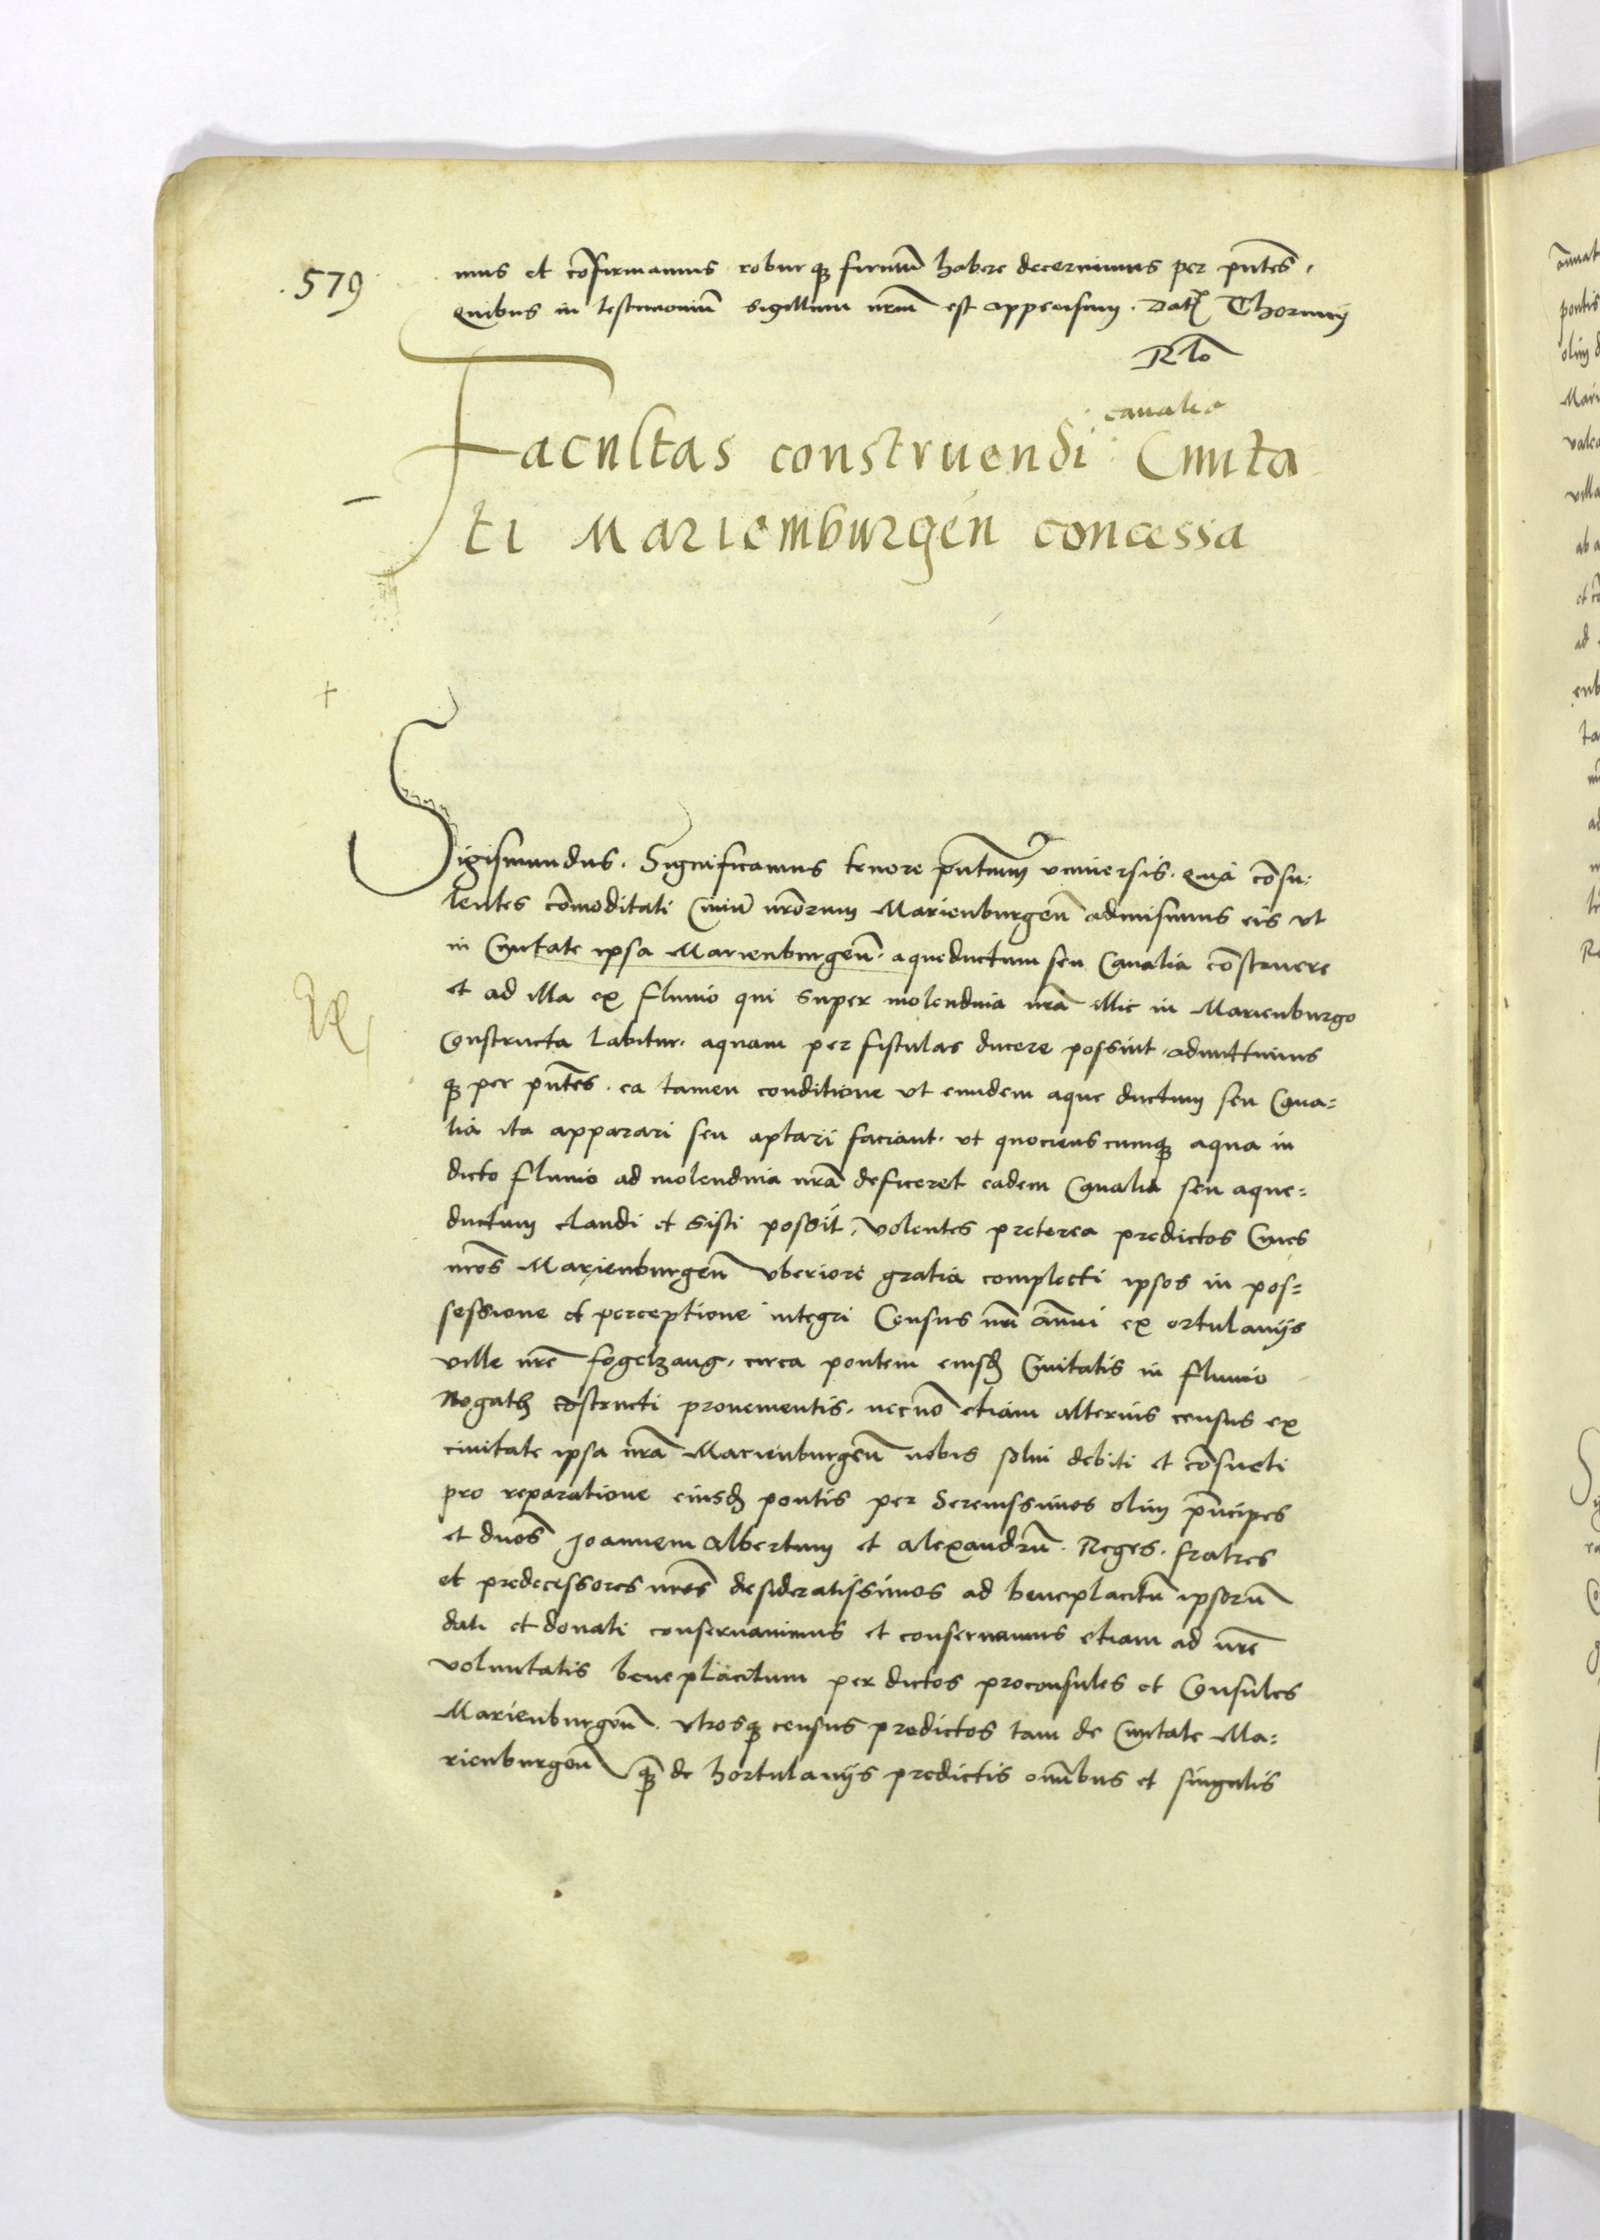 .579
mus et cōfirmamus robur qꝫ firmū habere decernimus per pñtes,
Quibus in testimoniū sigillum nrūm est appensum. Datꝭ Thorunij
Rlō
canalia
Facultas construendi Ciuita
ti Mariemburgeñ concessa
Sigismundus. Significamus tenore pñtium vniuersis. Quia cōsu-
lentes cōmoditati Ciuiū nrōrum Marienburgeñ admisimus eis vt
in Ciuitate ipsa Marienburgeñ. aqueductum seu Canalia cōstruere
et ad illa ex fluuio qui super molendina nrā illic in Marienburgo
Constructa labitur. aquam per fistulas ducere possint. admittimus
qꝫ per pñtes. ea tamen conditione vt eiusdem aque ductum seu Cana=
lia ita apparari seu aptari faciant. vt quocienscumqꝫ aqua in
dicto fluuio ad molendina nrā deficeret eadem Canalia seu aque=
ductum claudi et sisti possit. Volentes preterea predictos Ciues
nrōs Marienburgeñ vberiore gratia complecti ipsos in pos=
sessione et perceptione integri Census nrī āñui ex ortulanijs
ville nrē fogelzang. circa pontem eiusđ Ciuitatis in fluuio
Nogath cōstructi prouenientis. necnō etiam alterius census ex
ciuitate ipsa nrā Marienburgeñ nobis solui debiti et cōsueti
pro reparatione eiusđ pontis per Serenissimos olim pñcipes
et dnōs Joannem Albertum et Alexandrū. Reges. fratres
et predecessores nrōs desideratissimos ad beneplacitū ipsorū
dati et donati conseruauimus et conseruamus etiam ad nrē
voluntatis beneplacitum per dictos proconsules et Consules
Marienburgeñ. vtrosqꝫ census predictos tam de Ciuitate Ma=
rienburgeñ qꝫ de hortulanijs predictis omībus et singulis